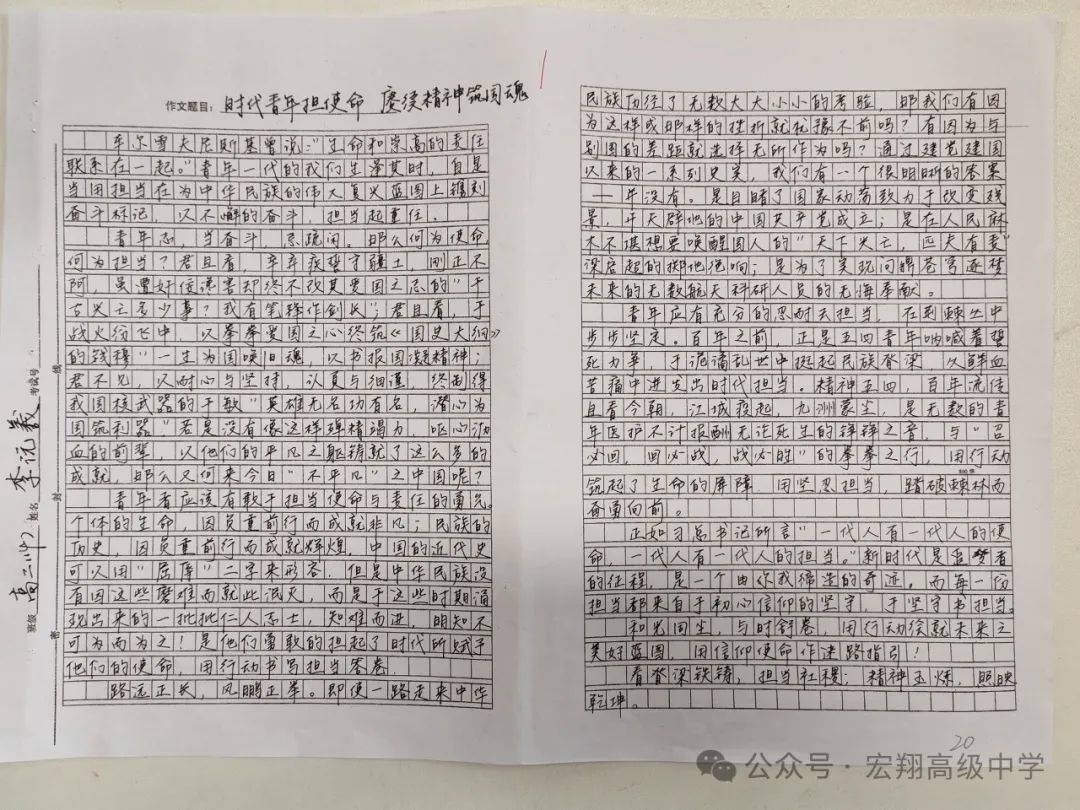 作文题目: 时代青年担使命 赓续精神筑国魂
车尔雪夫尼斯基曾说:"生命和崇高的责任
联系在一起。"青年一代的我们生逢其时,自是
当用担当在为中华民族的伟大复兴蓝图上镌刻
奋斗标记,以不懈的奋斗,担当起重任.
青年志,当奋斗,忌疏闲。那么何为使命,
何为担当?君且看,辛弃疾誓守疆土,刚正不
阿,虽遭奸佞谗害却终不改其爱国之志的"千
古兴亡多少事?我有笔锋作剑长";君且看,于
战火纷飞中,以拳拳爱国之心终筑《国史大纲》
的钱穆"一生为国唤旧魂,以书报国凝精神;
君不见,以耐心与坚持,认真与细谨,终制得
我国核武器的于敏"英雄无名功有名,潜心为
国筑利器"若是没有像这样殚精竭力,呕心沥
血的前辈,以他们的平凡之躯铸就了这么多的
成就,那么又何来今日"不平凡"之中国呢?
青年者应该有敢于担当使命与责任的勇气。
个体的生命,因负重前行而成就非凡;民族的
历史,因负重前行而成就辉煌,中国的近代史
可以用"屈辱"二字来形容,但是中华民族没
有因这些磨难而就此泯灭,而是于这些时期涌
现出来的一批批仁人志士,知难而进,明知不
可为而为之!是他们勇敢的担起了时代所赋予
他们的使命,用行动书写担当答卷
路远正长,风鹏正举。即使一路走来中华
班级 高二(7) 姓名 李沅羲 考试号
密 封 线
民族历经了无数大大小小的考验,那我们有因
为这样或那样的挫折就犹豫不前吗?有因为与
别国的差距就选择无所作为吗?通过建党建国
以来的一系列史实,我们有一个很明晰的答案
——没有。是目睹了国家动荡致力于改变残
景,开天辟地的中国共产党成立;是在人民麻
木不堪想要唤醒国人的"天下兴亡,匹夫有责"
梁启超的掷地绝响;是为了实现问鼎苍穹逐梦
未来的无数航天科研人员的无悔奉献。
青年应有充分的忍耐去担当,在荆棘丛中
步步坚定。百年之前,正是五四青年呐喊着誓
死力争,于诡谲乱世中挺起民族脊梁,久鲜血
苦痛中迸发出时代担当。精神五四,百年流传
且看今朝,江城疫起,九州蒙尘,是无数的青
年医护不计报酬无论死生的铮铮之音,与"召
必回,回必战,战必胜"的拳拳之行,用行动
筑起了生命的屏障 用坚忍担当,踏破棘林而
奋勇向前。
正如习总书记所言"一代人有一代人的使
命,一代人有一代人的担当。"新时代是追梦者
的征程,是一个由你我缔造的奇迹。而每一份
担当都来自于初心信仰的坚守,于坚守书担当。
和光同尘,与时舒卷,用行动绘就未来之
美好蓝图,用信仰使命作建路指引!
看脊梁铁铸,担当社稷;精神五炼,照映
乾坤。
20
公众号·宏翔高级中学